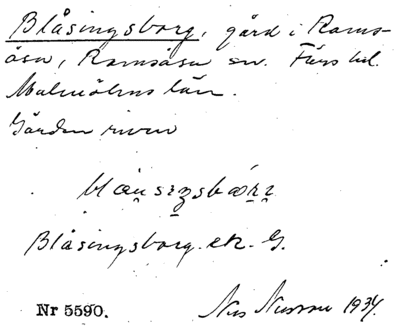 Blåsingsborg, gård i Rams-
åsa, Ramsåsa sn. Färs hd.
Malmöhus län.
Gården riven
Blåsingsborg. ek. G.
Nr 5590.
Nils Nilsson 1934.